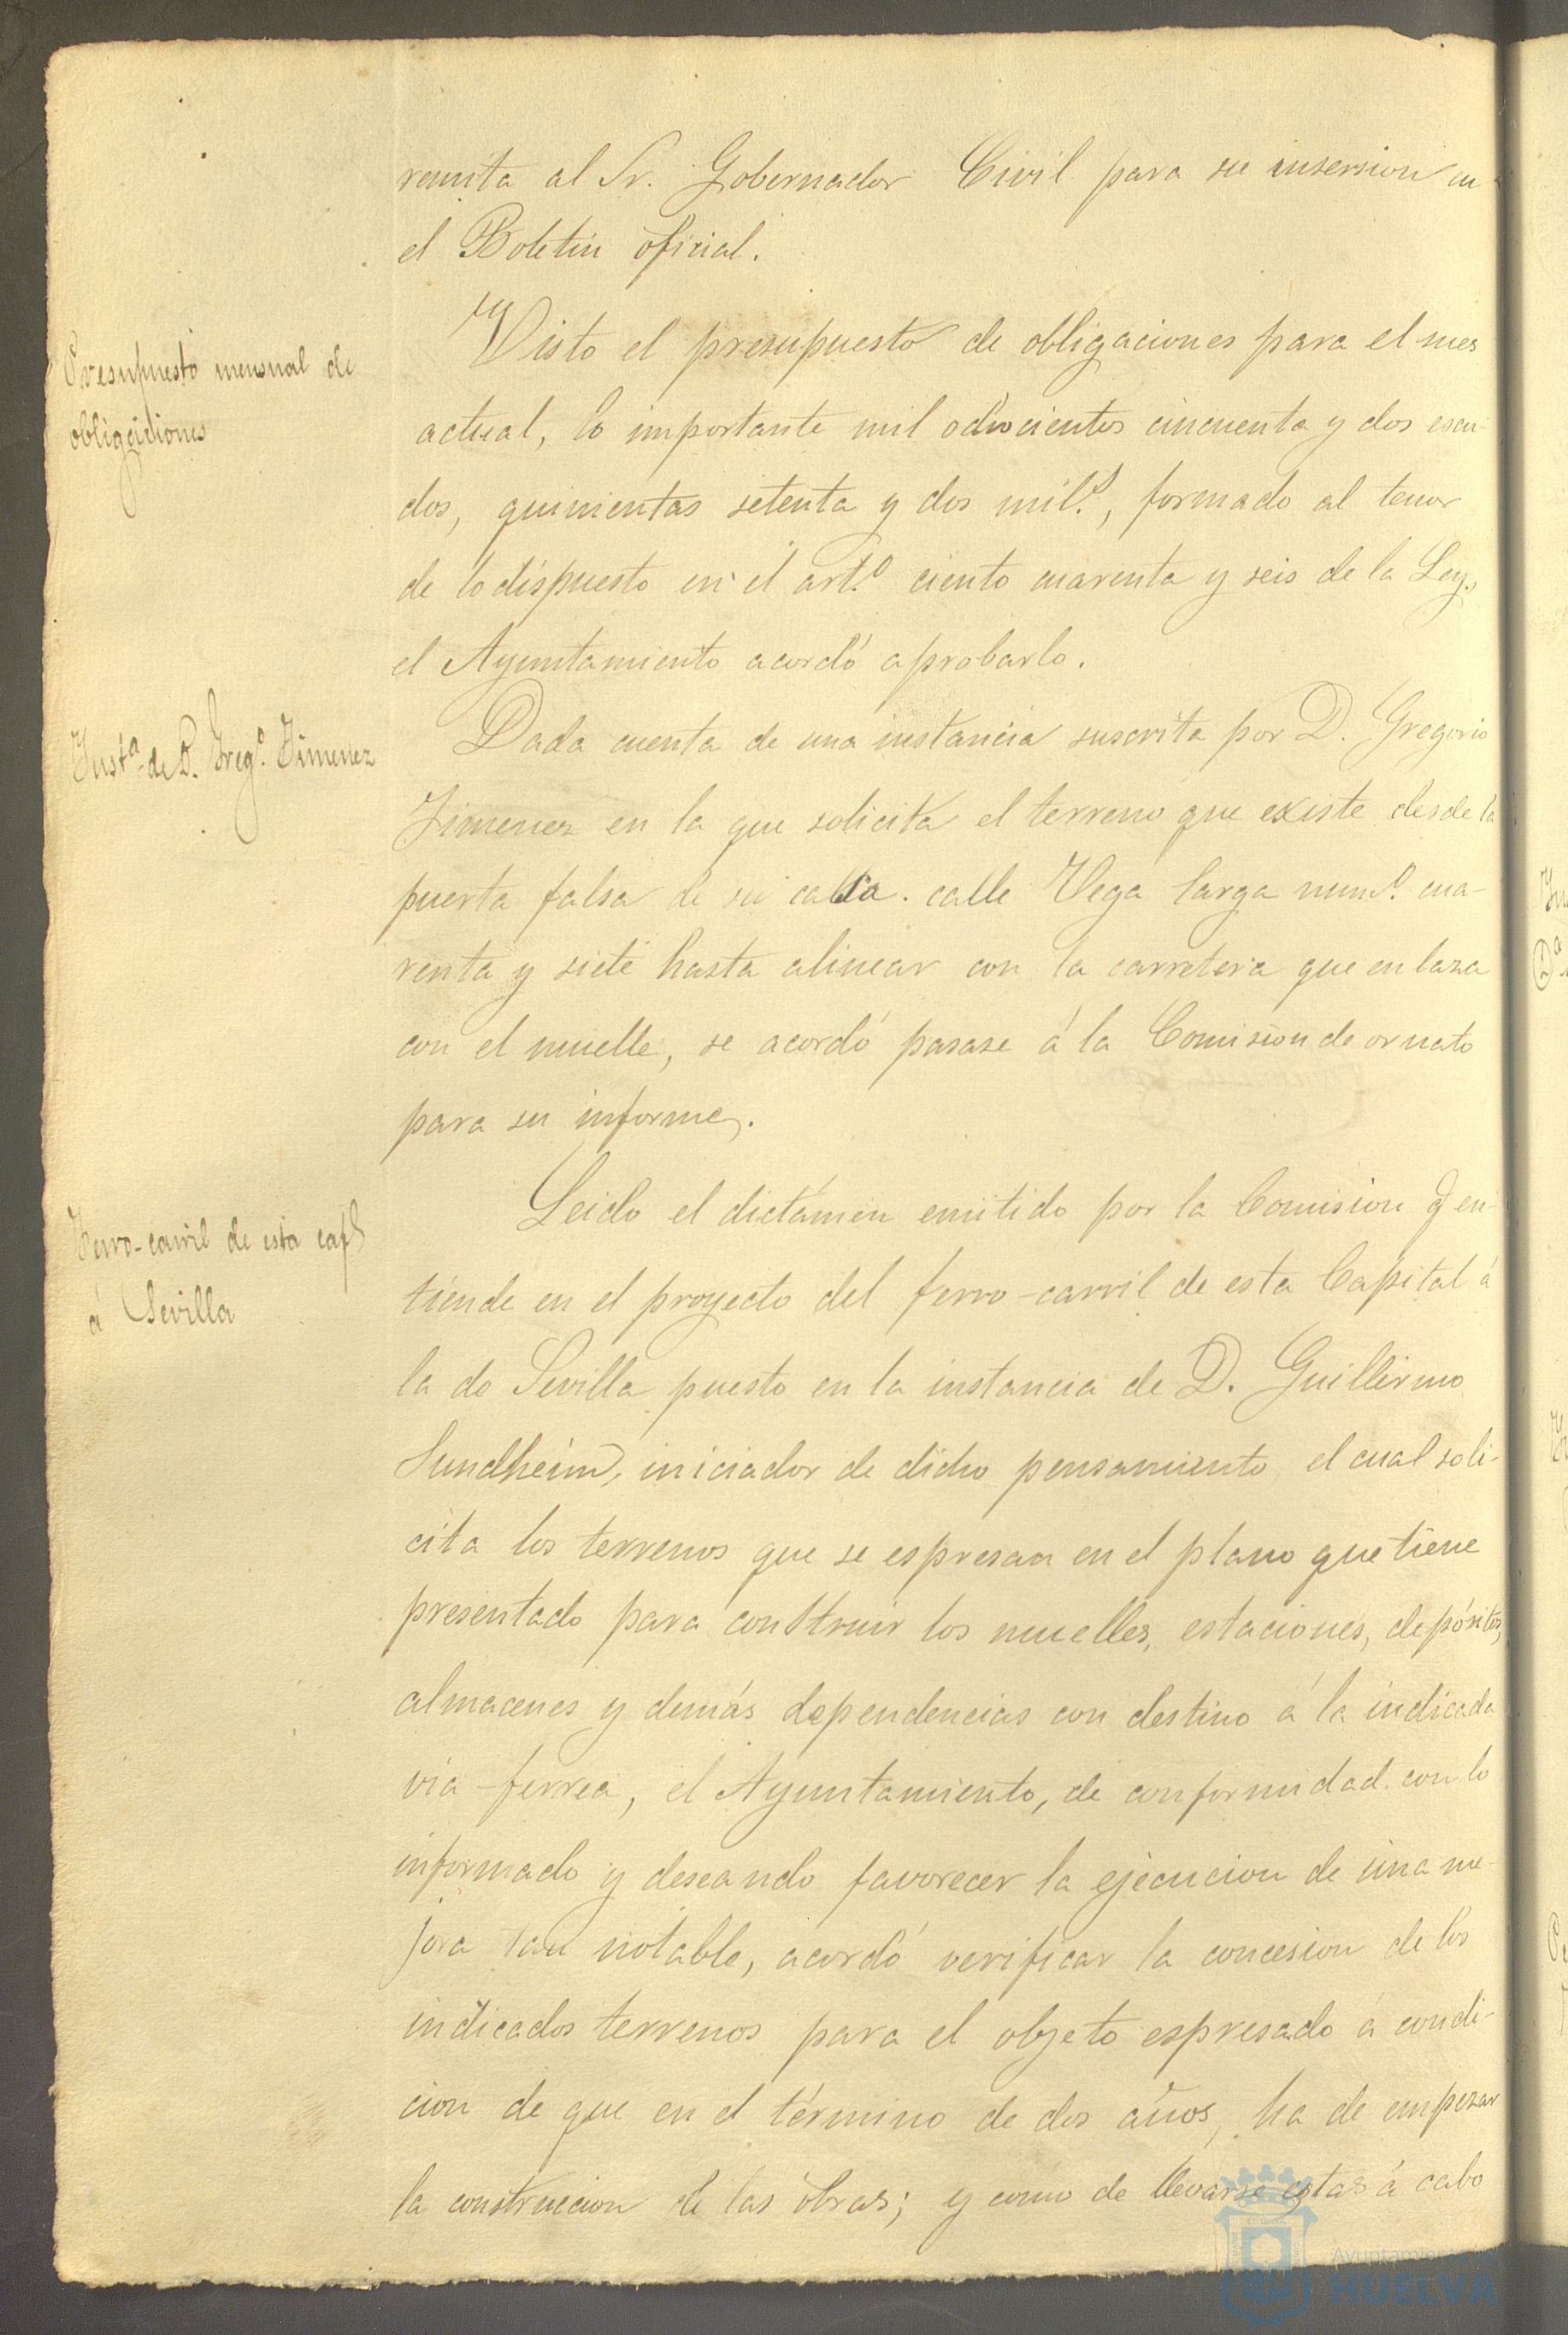 remita al Sr. Gobernador Civil para su insersion en
el Boletin oficial.
Presupuesto mensual de
obligaciones
Visto el presupuesto de obligaciones para el mes
actual, lo importante mil ochocientos cincuenta y dos escu-
dos, quinientas setenta y dos mil.s, formado al tenor
de lo dispuesto en el art.o ciento cuarenta y seis de la Ley,
el Ayuntamiento acordó aprobarlo.
Inst.a de D. Greg.o Jimenez
Dada cuenta de una instancia suscrita por D. Gregorio
Jimenez en la que solicita el terreno que existe desde la
puerta falsa de su casa calle Vega larga num.o cua-
renta y siete hasta alinear con la carretera que enlaza
con el muelle, se acordó pasase á la Comision de ornato
para su informe.
Ferro-carril de esta cap.l
á Sevilla
Leido el dictámen emitido por la Comision q en-
tiende en el proyecto del ferro-carril de esta Capital á
la de Sevilla puesto en la instancia de D. Guillermo
Sundheim, iniciador de dicho pensamiento, el cual soli-
cita los terrenos que se espresan en el plano que tiene
presentado para construir los muelles, estaciones, depósitos,
almacenes y demás dependencias con destino á la indicada
via-ferrea, el Ayuntamiento, de conformidad con lo
informado y deseando favorecer la ejecucion de una me-
jora tan notable, acordó verificar la concesion de los
indicados terrenos para el objeto espresado á condi-
cion de que en el término de dos años, ha de empezar
la construccion de las obras; y como de llevarse estas á cabo
Ayuntamiento
HUELVA